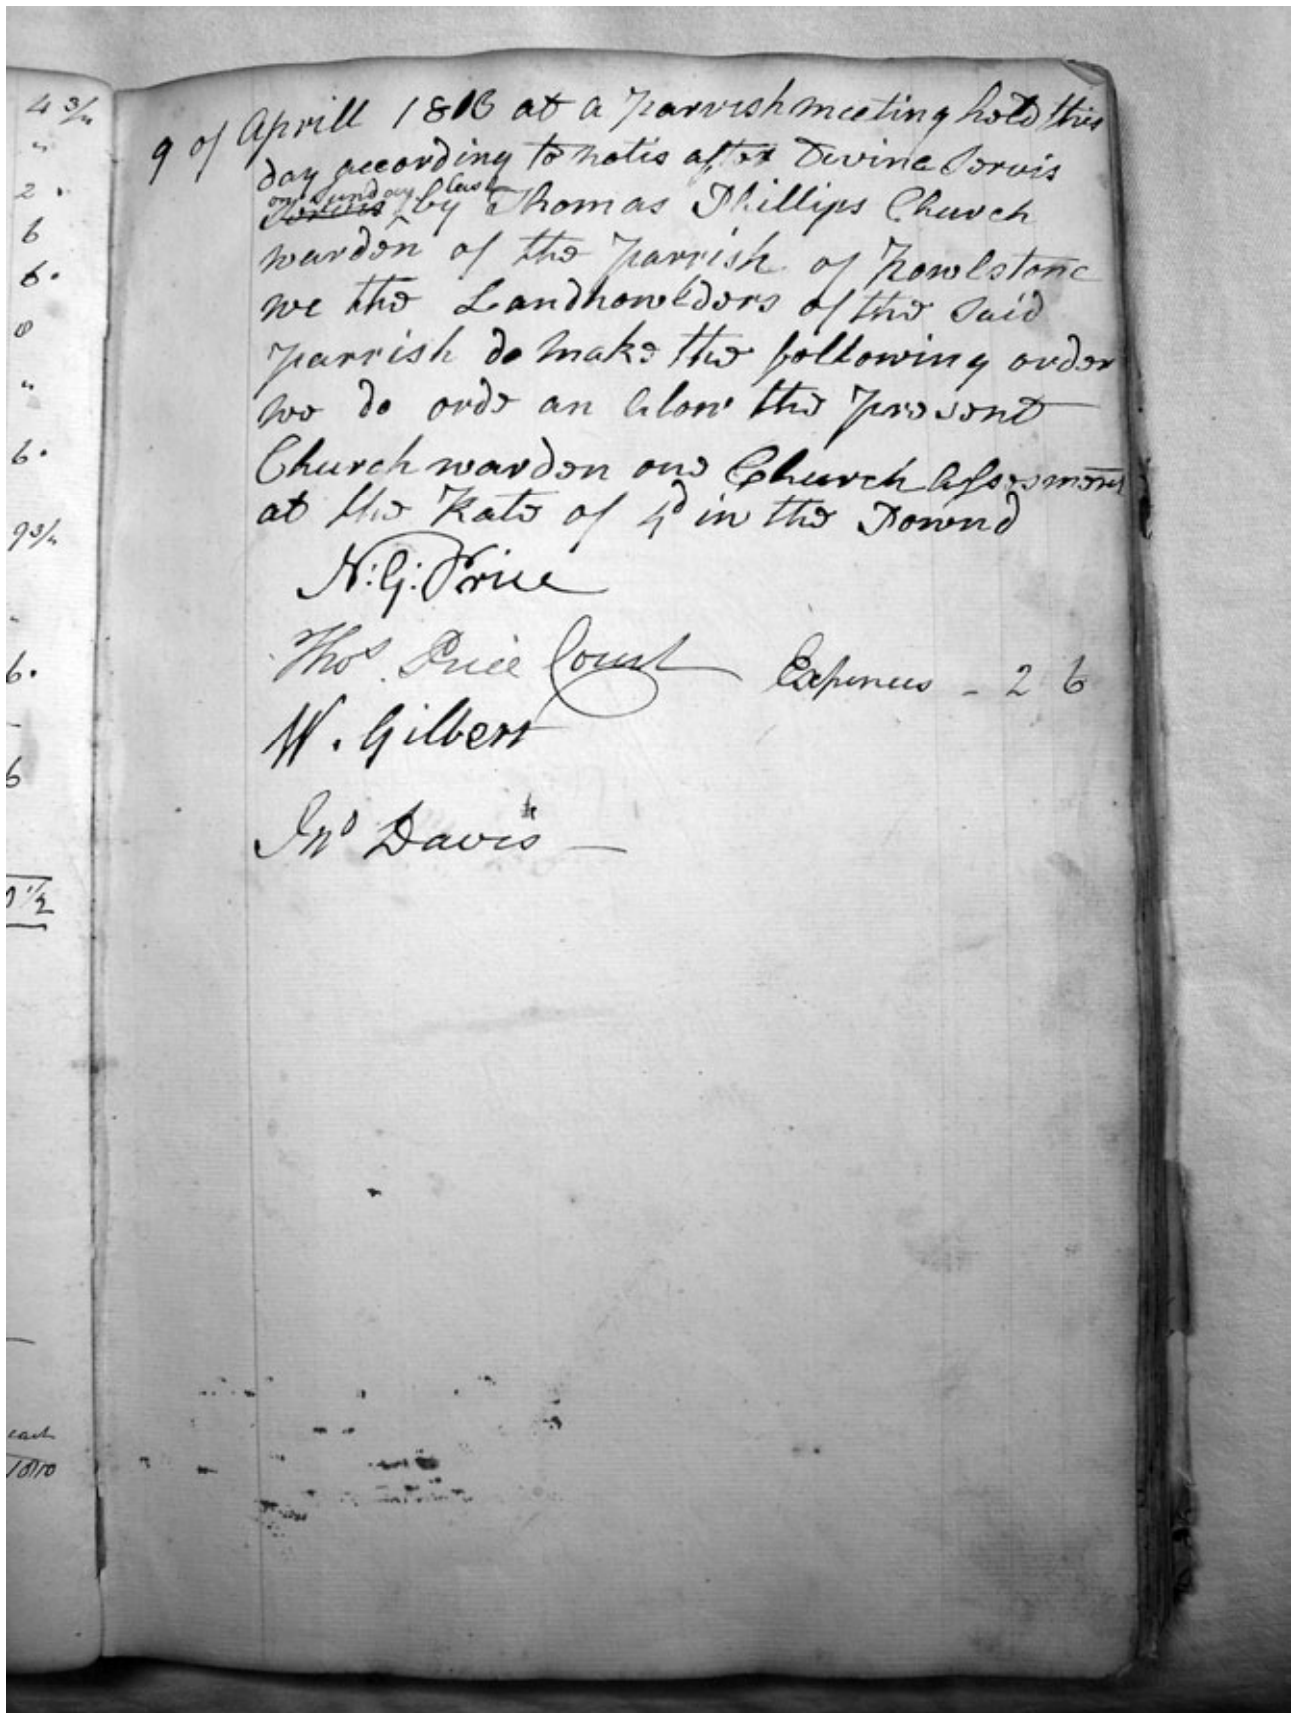 4 3/4
"
2 .
6
6 .
8
"
6 .
9 3/4
6 .
6
1/2
each
9 of Aprill 1813 at a Parrish meeting held this
day according to notis after Devine Servis
on Sunday last
Servis by Thomas Phillips Church
warden of the Parrish of Rowlstone
we the Landhowlders of the Said
Parrish do make the following order
we do orde an alow the Present
Church warden one Church Assesment
at the Rate of 4d in the Pownd
N: G: Price
Thos Price Court
Expences - 2 6
W. Gilbert
Jno Davis